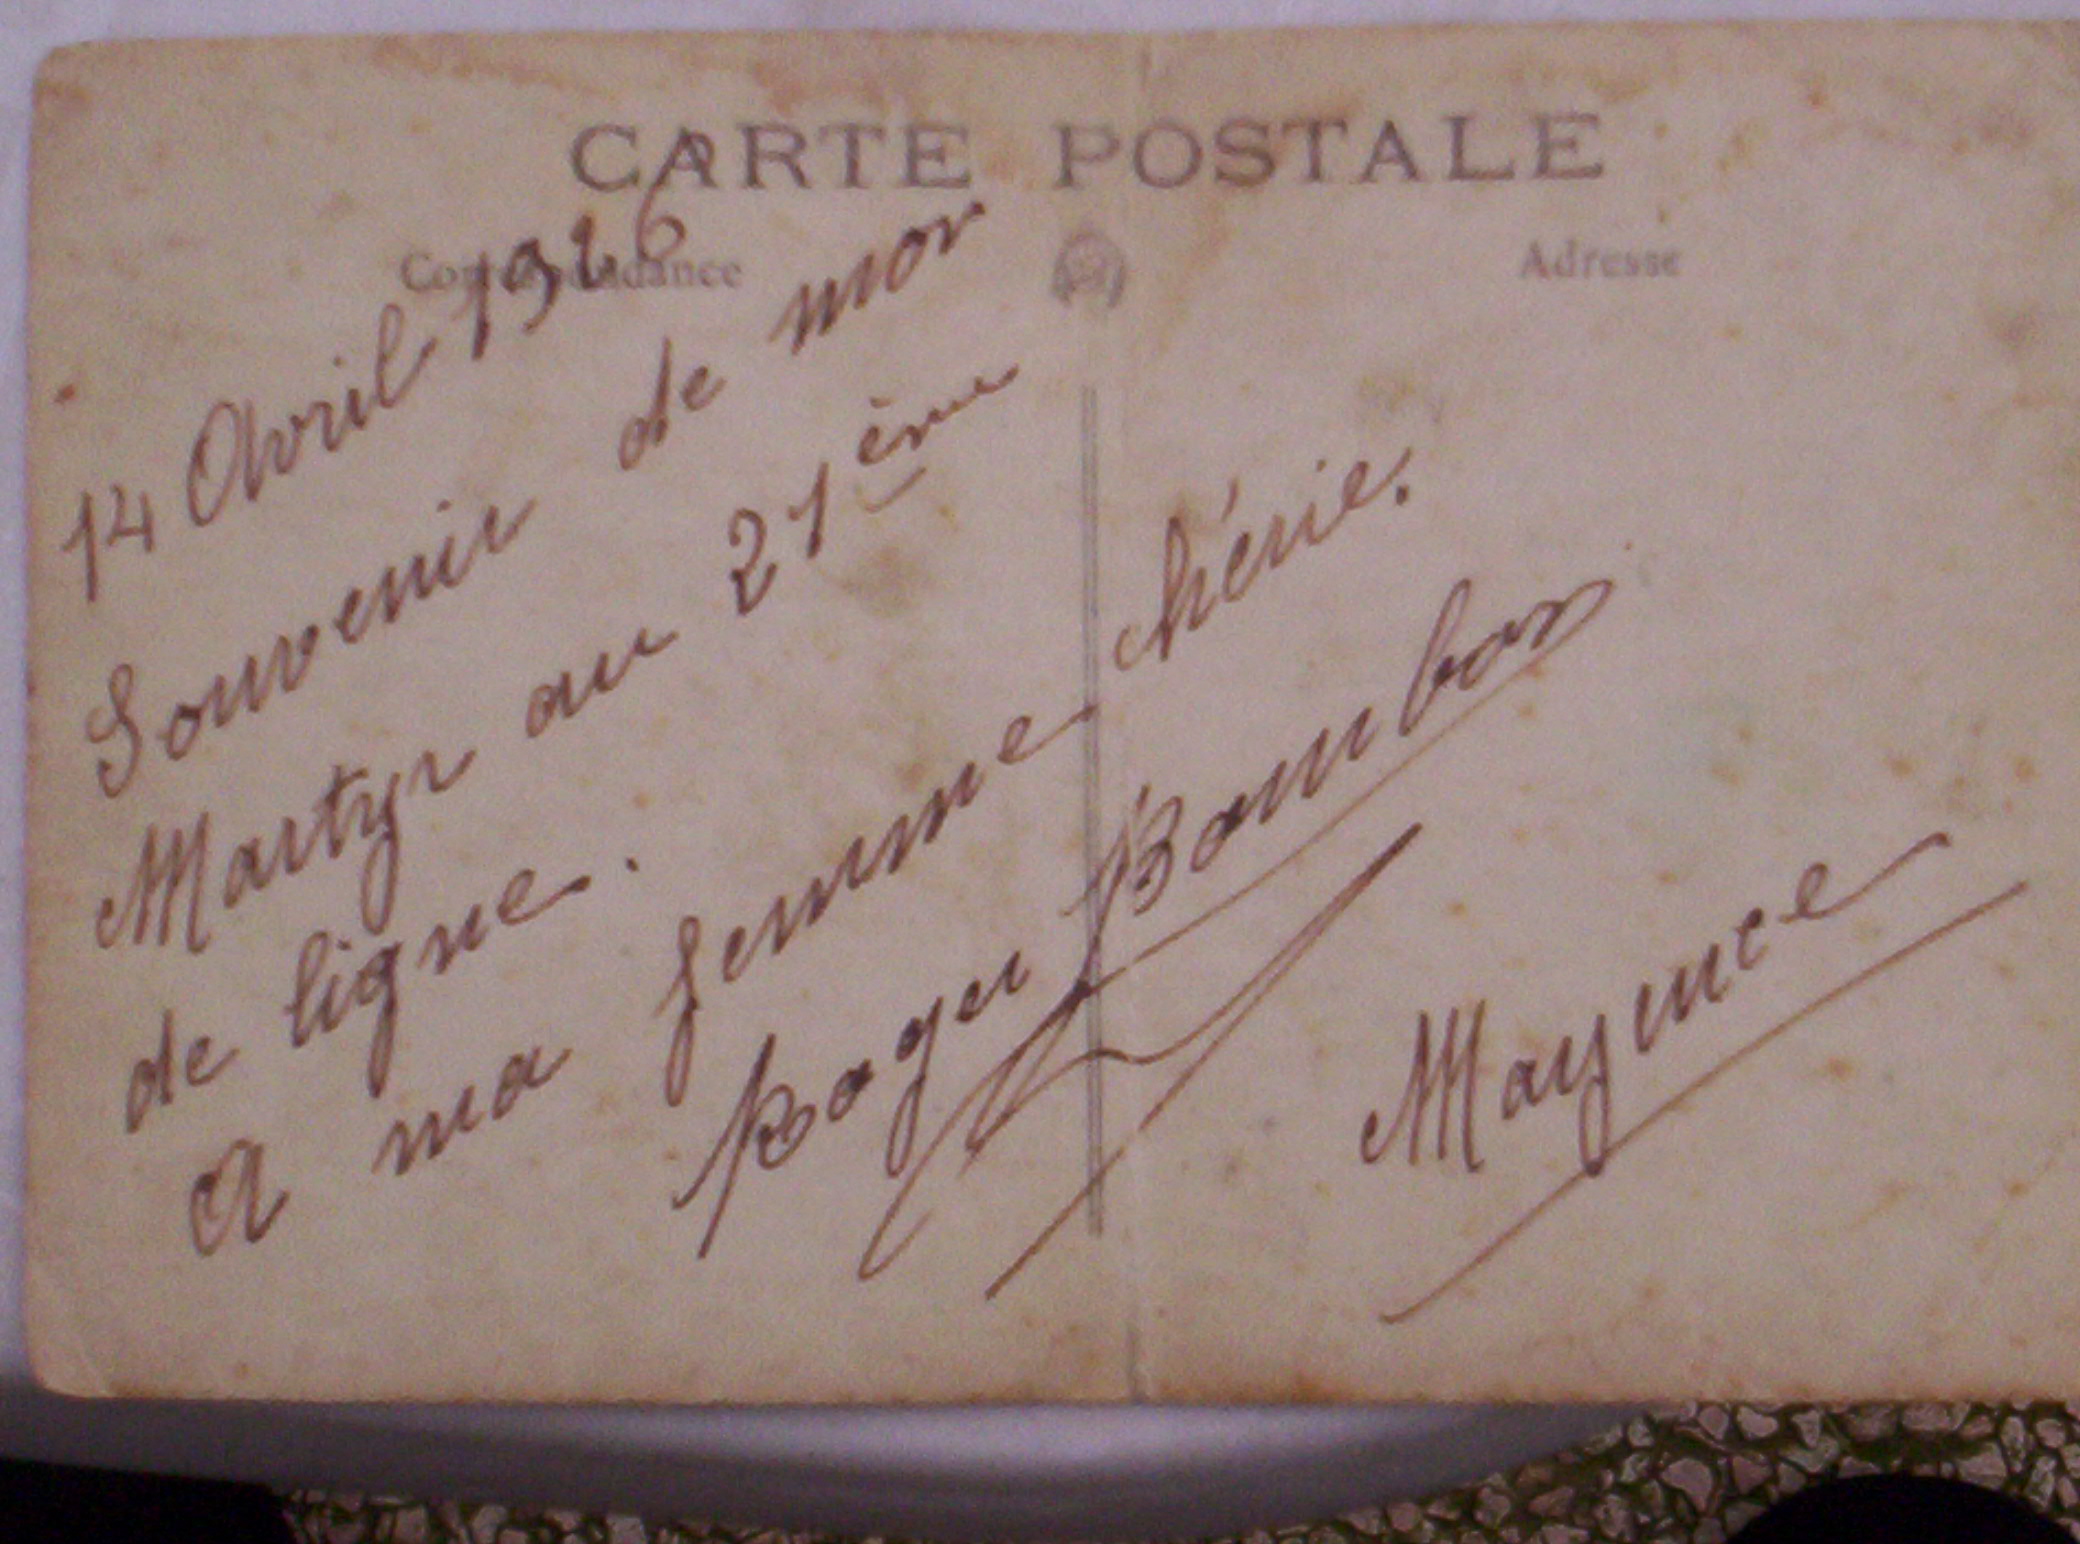 CARTE POSTALE
Correspondance
Adresse
14 Avril 1926
Souvenir de mor
Martyr au 21ème
de ligne.
A ma femme chérie.
Roger Bambon
Mayence